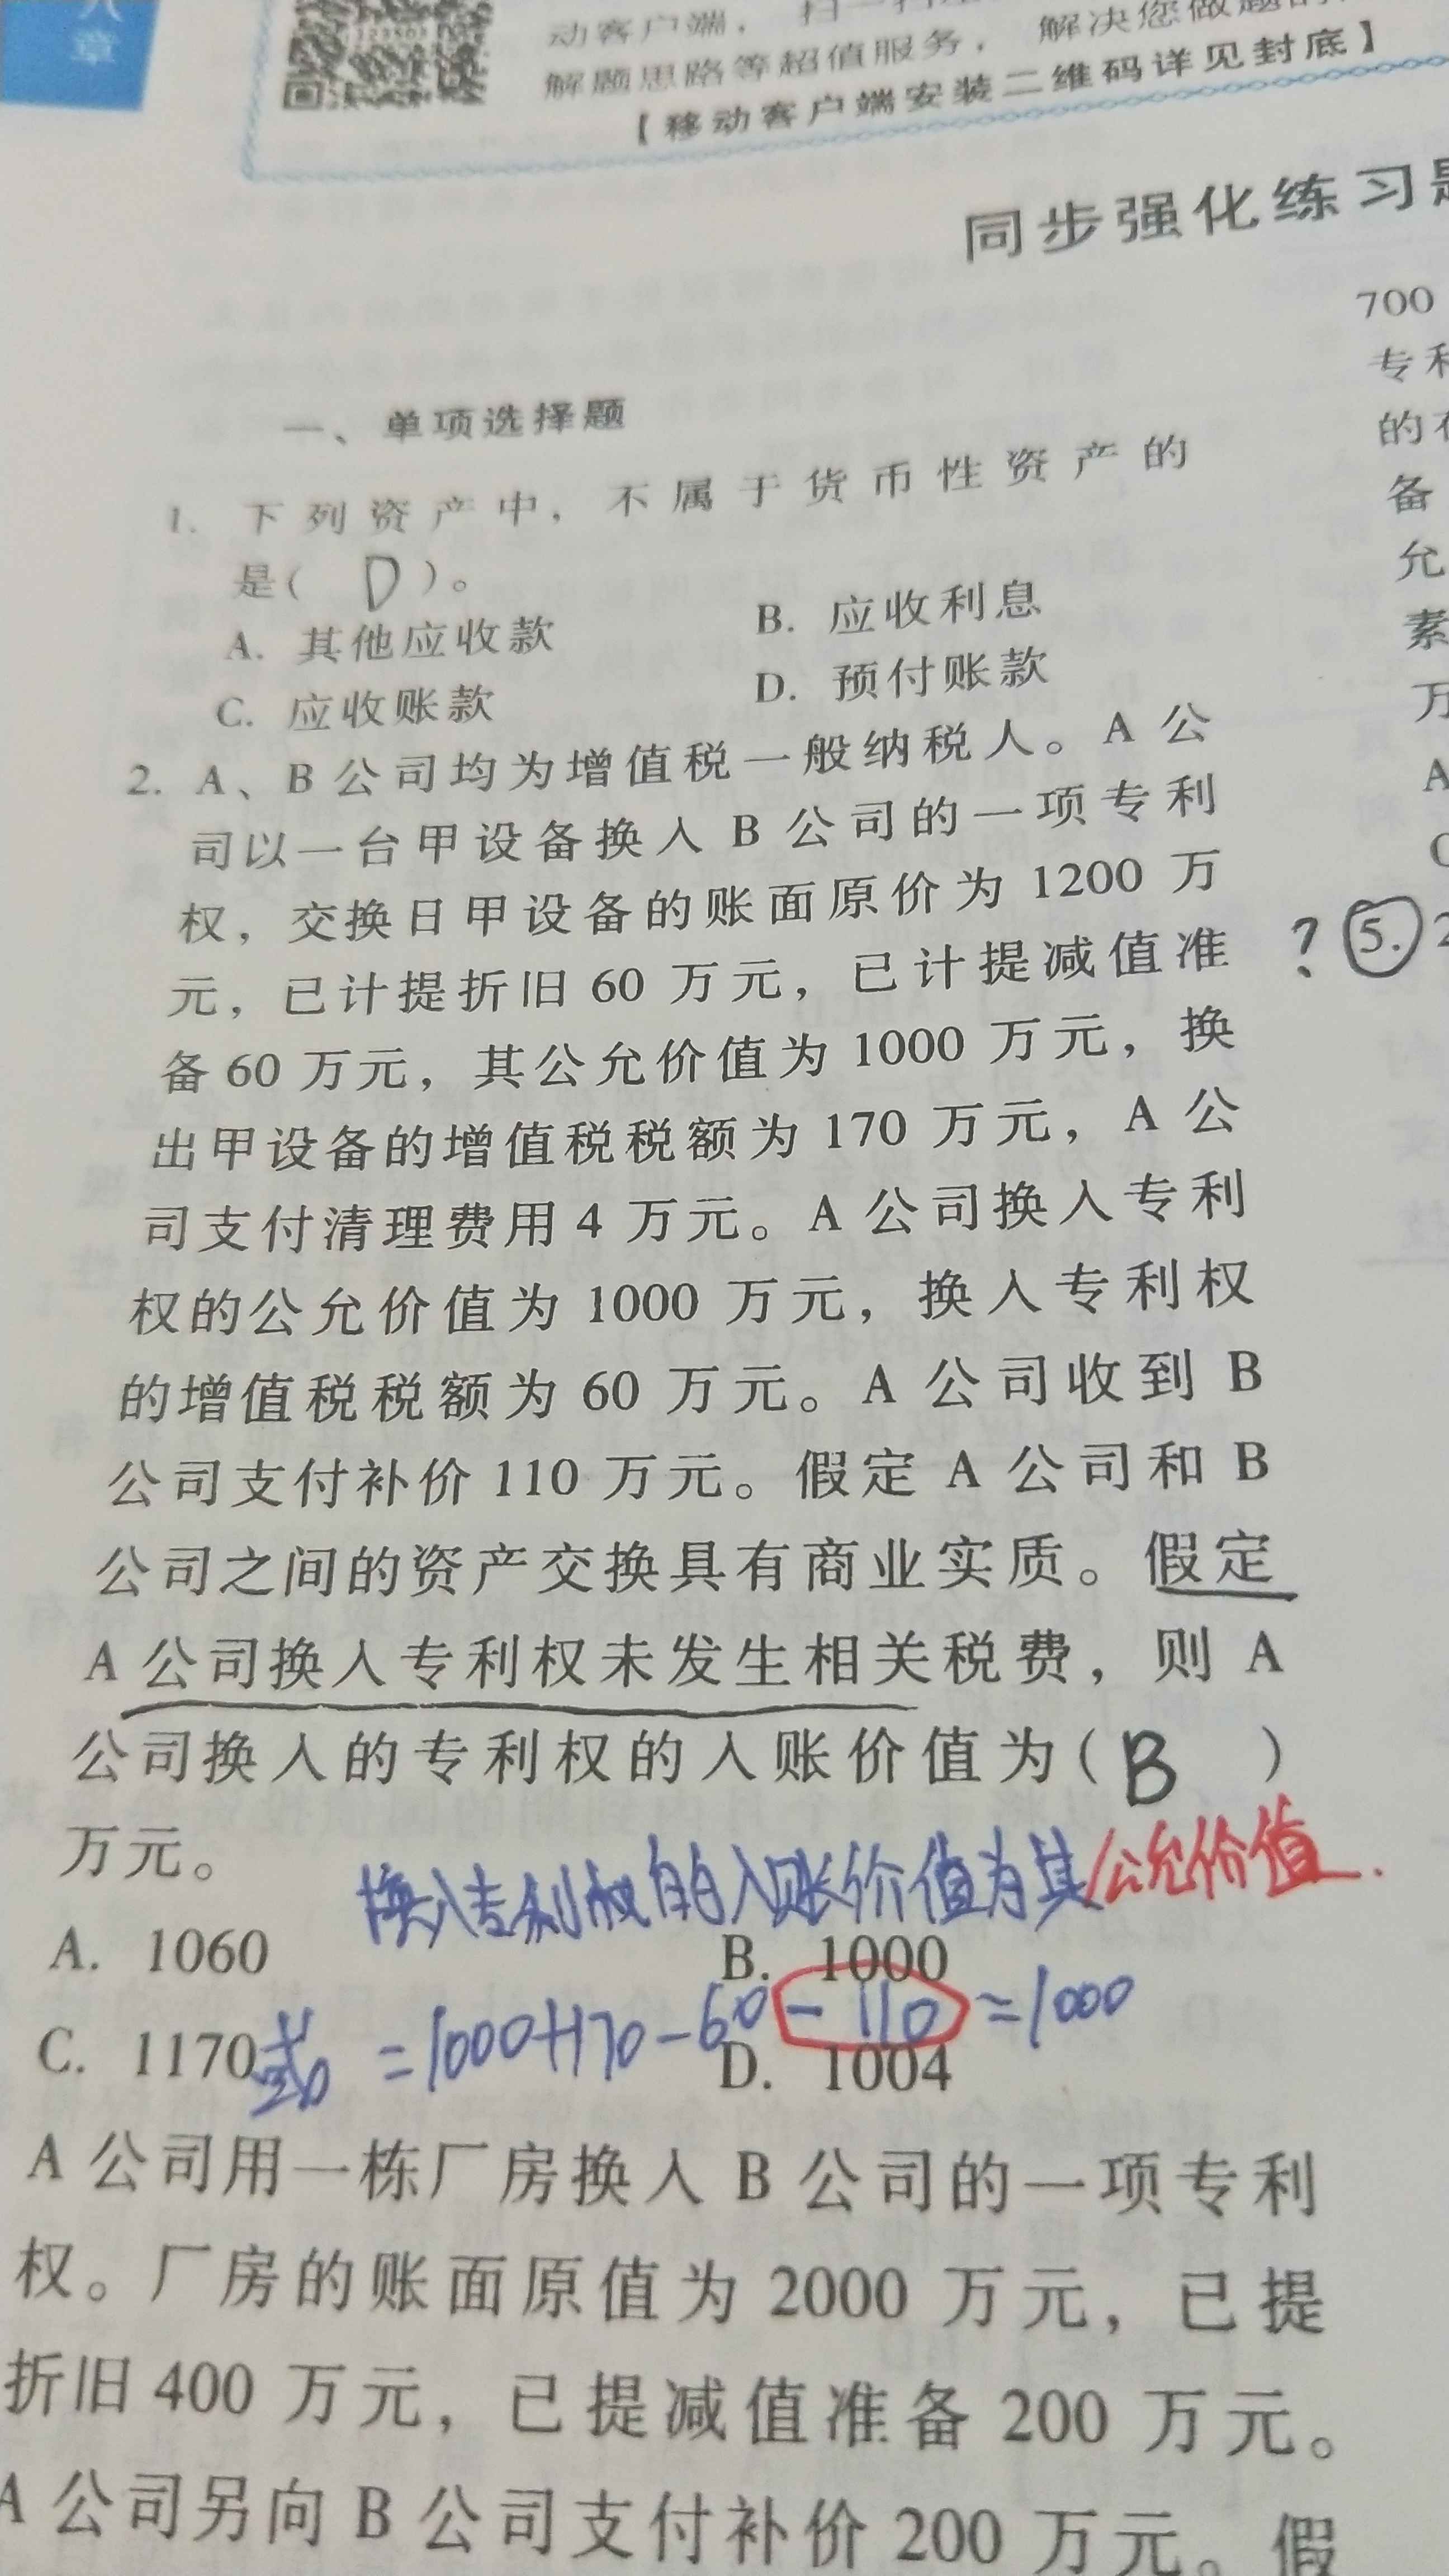 章
动客户端，扫一扫
解题思路等超值服务，解决您做题
【移动客户端安装二维码详见封底】
同步强化练习
一、单项选择题
1. 下列资产中，不属于货币性资产的
是( D )。
A. 其他应收款 B. 应收利息
C. 应收账款 D. 预付账款
2. A、B公司均为增值税一般纳税人。A公
司以一台甲设备换入B公司的一项专利
权，交换日甲设备的账面原价为1200万
元，已计提折旧60万元，已计提减值准
备60万元，其公允价值为1000万元，换
出甲设备的增值税税额为170万元，A公
司支付清理费用4万元。A公司换入专利
权的公允价值为1000万元，换入专利权
的增值税税额为60万元。A公司收到B
公司支付补价110万元。假定A公司和B
公司之间的资产交换具有商业实质。假定
A公司换入专利权未发生相关税费，则A
公司换入的专利权的入账价值为( B )
万元。
换入专利权的入账价值为其公允价值.
A. 1060 B. 1000
或 =1000+170-60-110=1000
C. 1170 D. 1004
A公司用一栋厂房换入B公司的一项专利
权。厂房的账面原值为2000万元，已提
折旧400万元，已提减值准备200万元。
A公司另向B公司支付补价200万元。假
700
专
的
备
允
素
万
A
? 5. 2